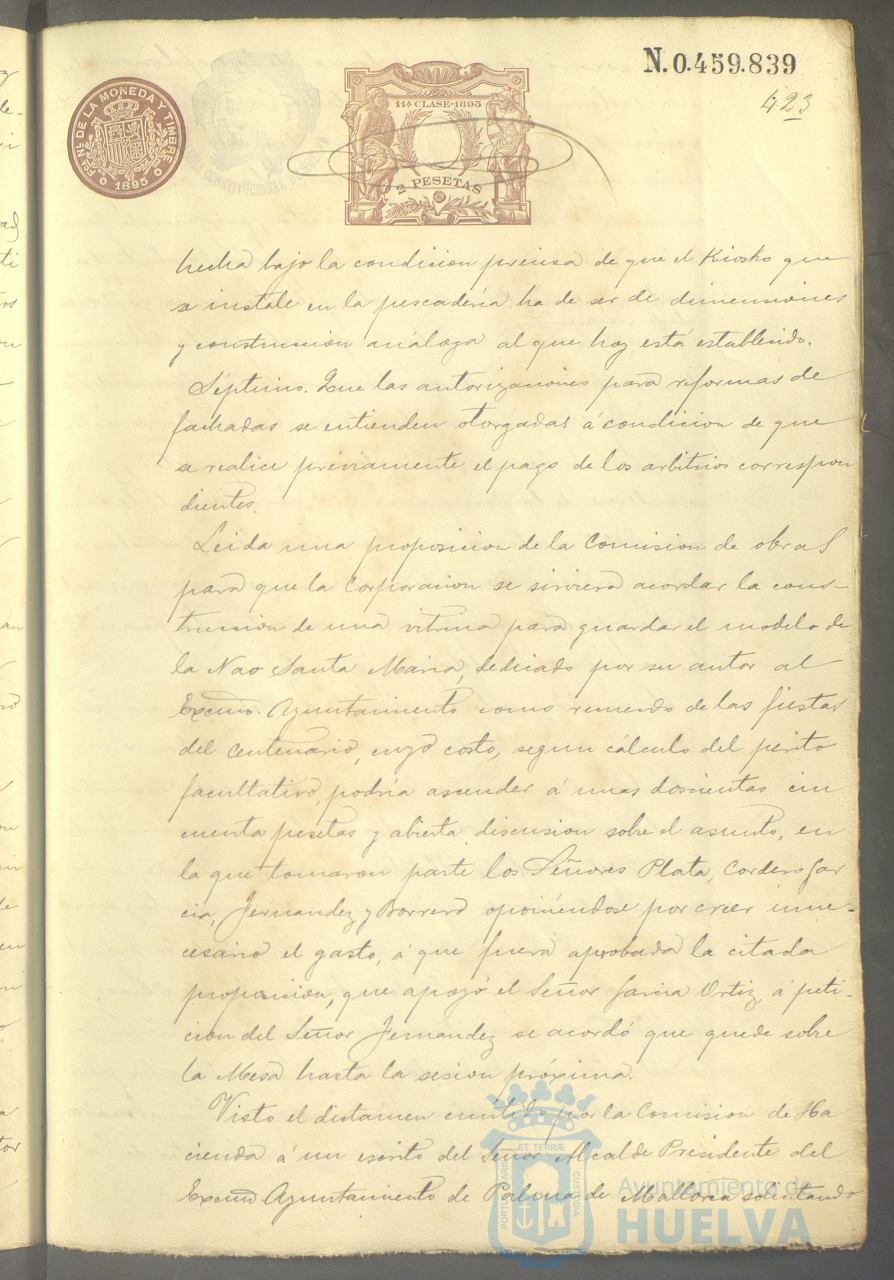 N. 0.459.839
423
FCA NL DE LA MONEDA Y TIMBRE
1895
11ª CLASE · 1895
2 PESETAS
hecha bajo la condicion precisa de que el Kiosko que
se instale en la pescadería ha de ser de dimensiones
y construccion análoga al que hoy está establecido.
Séptimo. Que las autorizaciones para reformas de
fachadas se entienden otorgadas á condicion de que
se realice préviamente el pago de los arbitrios correspon
dientes.
Leida una proposicion de la Comision de obras
para que la Corporacion se sirviera acordar la cons-
truccion de una vitrina para guardar el modelo de
la Nao Santa Maria, dedicado por su autor al
Excmo. Ayuntamiento como recuerdo de las fiestas
del centenario, cuyo costo, segun cálculo del perito
facultativo, podría ascender á unas doscientas cin
cuenta pesetas y abierta discusion sobre el asunto, en
la que tomaron parte los Señores Plata, Cordero, Gar
cia, Fernandez y Borrero oponiéndose por creer inne-
cesario el gasto, á que fuera aprobada la citada
proposicion, que apoyó el Señor Garcia Ortiz, á peti-
cion del Señor Fernandez se acordó que quede sobre
la Mesa hasta la sesion próxima.
Visto el dictamen emitido por la Comision de Ha
cienda á un escrito del Señor Alcalde Presidente del
Excmo. Ayuntamiento de Palma de Mallorca solicitando
PORTUS MARIS ET TERRÆ CUSTODIA
Ayuntamiento de
HUELVA